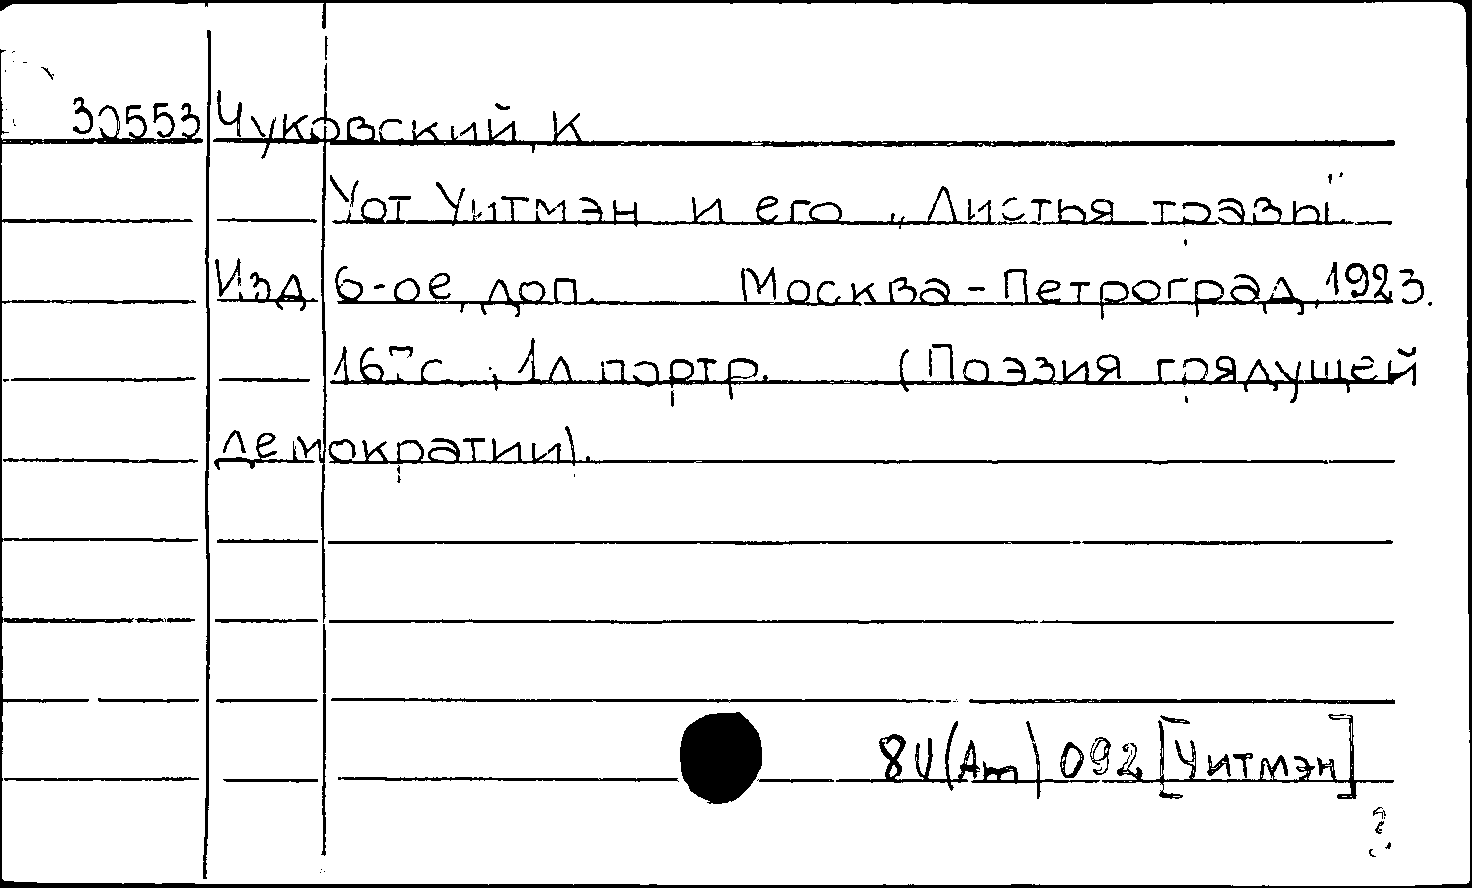 30553 Чуковский, К
Уот Уитмэн и его „Листья травы".
Изд 6-ое, доп. Москва-Петроград, 1923.
167с., 1л портр. (Поэзия грядущей
демократии).
8И(Am) 092 [Уитмэн]